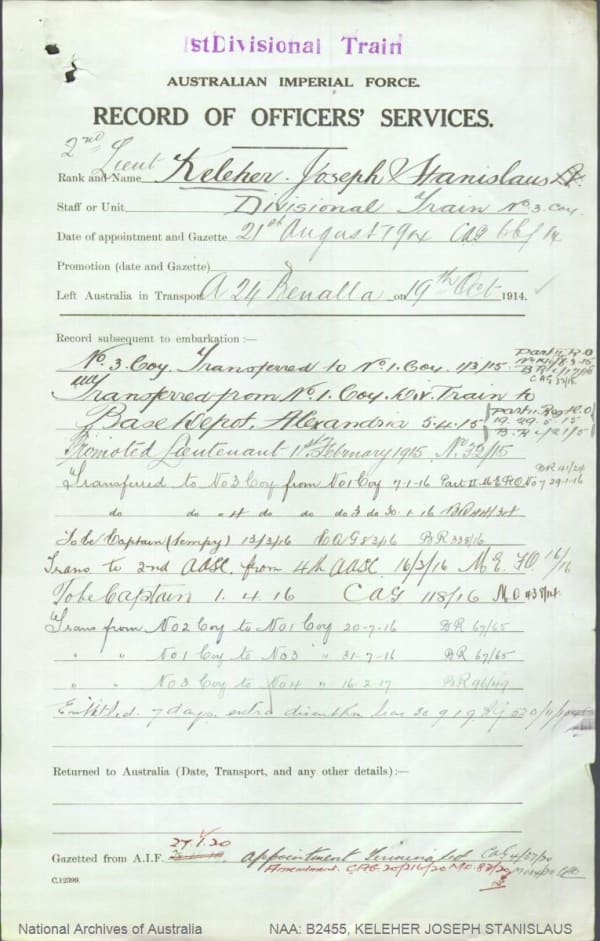 1stDivisional Train
AUSTRALIAN IMPERIAL FORCE.
RECORD OF OFFICERS' SERVICES.
2nd Lieut
Rank and Name Keleher Joseph Stanislaus
Staff or Unit Divisional Train No. 3. Coy.
Date of appointment and Gazette 21st August 1914 CAG
Promotion (date and Gazette)
Left Australia in Transport A 24 Benalla on 19th Oct 1914.
Record subsequent to embarkation :—
No. 3. Coy. Transferred to No. 1. Coy. 1/3/15
Transferred from No. 1. Coy. Div. Train to
Base Depot, Alexandria 5.4.15
Promoted Lieutenant 1st February 1915 No. 32/15
Transferred to No 3 Coy from No 1 Coy 7-1-16 Part II No 7 29-1-16
do do do do 3 do
To be Captain (Tempy) 13/3/16 CAG 83/16 BR
Trans to 2nd AASC. from 4th AASC 16/3/16 M.E. FO 16/16
To be Captain 1. 4. 16 CAG 118/16 MO
Trans from No 2 Coy to No 1 Coy 20-7-16 BR 67/65
" " No 1 Coy to No 3 " 31-7-16 BR 67/65
" " No 3 Coy to No 4 " 16-2-17 BR 96/49
Entitled 7 days extra
Returned to Australia (Date, Transport, and any other details) :—
27.1.20
Gazetted from A.I.F. appointment Terminated CAG 4/57/20
Amendment. CAG. 20/216/20 MO. 82/20
C.12399.
National Archives of Australia
NAA: B2455, KELEHER JOSEPH STANISLAUS